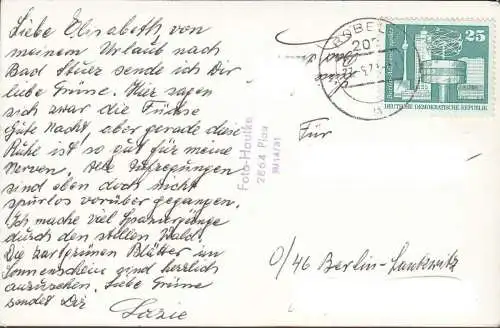 Liebe Elisabeth, von
meinem Urlaub nach
Bad Stuer sende ich Dir
liebe Grüße. Hier sagen
sich zwar die Füchse
Gute Nacht, aber gerade diese
Ruhe ist so gut für meine
Nerven. Alle Aufregungen
sind eben doch nicht
spurlos vorüber gegangen.
Ich mache viel Spaziergänge
durch den stillen Wald.
Die zartgrünen Blätter im
Sonnenschein sind herrlich
anzusehen. Liebe Grüße
sendet Dir
Foto-Houtke
2864 Plau
III/14/31
25
DEUTSCHE DEMOKRATISCHE REPUBLIK
Für
O/46 Berlin-Lankwitz